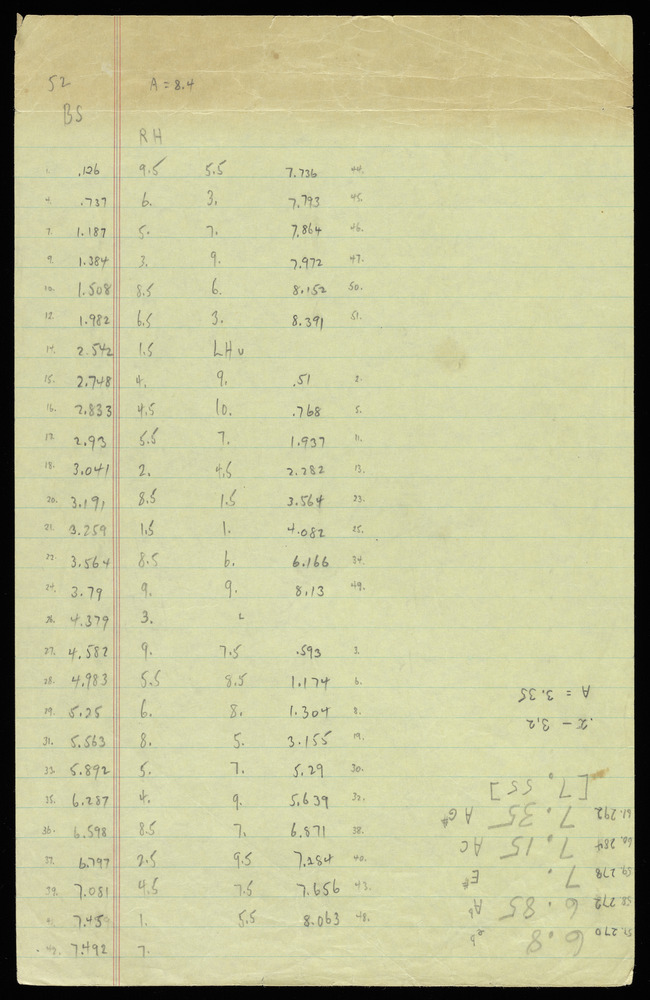 52 A = 8.4
BS
RH
1. .126 9.5 5.5 7.736 44.
4. .737 6. 3. 7.793 45.
7. 1.187 5. 7. 7.864 46.
9. 1.384 3. 9. 7.972 47.
10. 1.508 8.5 6. 8.152 50.
12. 1.982 6.5 3. 8.391 51.
14. 2.542 1.5 LH
15. 2.748 4. 9. .51 2.
16. 2.833 4.5 10. .768 5.
17. 2.93 5.5 7. 1.937 11.
18. 3.041 2. 4.5 2.282 13.
20. 3.191 8.5 1.5 3.564 23.
21. 3.259 1.5 1. 4.082 25.
22. 3.564 8.5 6. 6.166 34.
24. 3.79 9. 9. 8.13 49.
26. 4.379 3. L
27. 4.582 9. 7.5 .593 3.
28. 4.983 5.5 8.5 1.174 6.
29. 5.25 6. 8. 1.304 8.
31. 5.563 8. 5. 3.155 19.
33. 5.892 5. 7. 5.29 30.
35. 6.287 4. 9. 5.639 32.
36. 6.598 8.5 7. 6.871 38.
37. 6.797 2.5 9.5 7.284 40.
39. 7.081 4.5 7.5 7.656 43.
41. 7.45 1. 5.5 8.063 48.
42. 7.492 7.
57. 270 6.8 eb
58. 272 6.85 Ab
59. 278 7. E#
60. 284 7.15 AC
61. 292 7.35 AG#
[7.55]
.2 – 3.2
A = 3.35